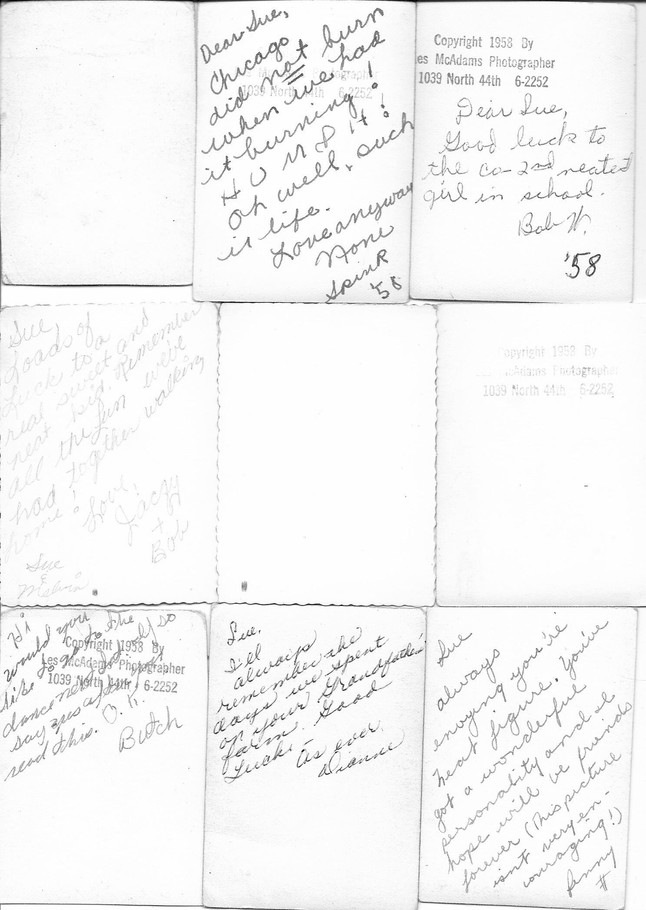 Dear Sue,
Chicago
did not burn
when we had
it burning!
H U M P H!
Oh well, such
is life.
Love anyway
None
Spink
'58
Copyright 1958 By
es McAdams Photographer
1039 North 44th 6-2252
Dear Sue,
Good luck to
the co-2nd neatest
girl in school.
Bob W.
'58
Sue
Loads of
Luck to a
real sweet and
neat kid. Remember
all the fun we've
had together walking
home!
Love,
+
Bob
Sue
&
Melvin
Copyright 1958 By
McAdams Photographer
1039 North 44th 6-2252
Hi
would you
like to go to the
dance next
say yes after
read this. O.K.
Butch
Copyright 1958 By
Les McAdams Photographer
1039 North 44th 6-2252
Sue,
I'll
always
remember the
days we spent
on your Grandfather's
farm. Good
Luck -
As ever
Dianne
Sue
always
envying you're
neat figure. You've
got a wonderful
personality and I
hope will be friends
forever (This picture
isn't very en-
couraging!)
Penny
#